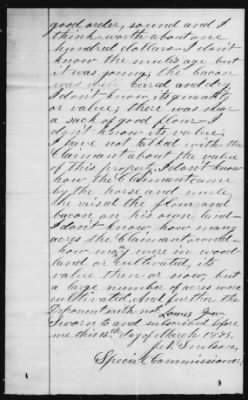 good order, sound and I
think worth about one
hundred dollars - I don't
know the mules age but
it was young, the bacon
was well cured and dry
I don't know its quantity
or value, there was also
a sack of good flour - I
don't know its value,
I have not talked with the
Claimant about the value
of this property, I don't know
how the Claimant came
by the horse and mule
he raised the flour and
bacon on his own land -
I don't know, how many
acres the Claimant owned -
how many were in wood
land or cultivated, its
value then or now, but
a large number of acres were
cultivated, And further the
Deponent saith not
Sworn to and subscribed before
me this 15th day of March 1875.
Special Commissioner,